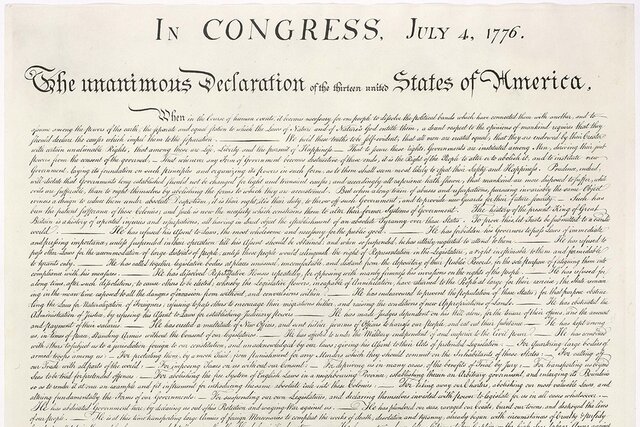 In CONGRESS, July 4, 1776.
The unanimous Declaration of the thirteen united States of America,
When in the Course of human events, it becomes necessary for one people to dissolve the political bands which have connected them with another, and to
assume among the powers of the earth, the separate and equal station to which the Laws of Nature and of Nature's God entitle them, a decent respect to the opinions of mankind requires that they
should declare the causes which impel them to the separation. — We hold these truths to be self-evident, that all men are created equal, that they are endowed by their Creator
with certain unalienable Rights, that among these are Life, Liberty and the pursuit of Happiness. — That to secure these rights, Governments are instituted among Men, deriving their just
powers from the consent of the governed, — That whenever any Form of Government becomes destructive of these ends, it is the Right of the People to alter or to abolish it, and to institute new
Government, laying its foundation on such principles and organizing its powers in such form, as to them shall seem most likely to effect their Safety and Happiness. Prudence, indeed,
will dictate that Governments long established should not be changed for light and transient causes; and accordingly all experience hath shewn, that mankind are more disposed to suffer, while
evils are sufferable, than to right themselves by abolishing the forms to which they are accustomed. But when a long train of abuses and usurpations, pursuing invariably the same Object
evinces a design to reduce them under absolute Despotism, it is their right, it is their duty, to throw off such Government, and to provide new Guards for their future security. — Such has
been the patient sufferance of these Colonies; and such is now the necessity which constrains them to alter their former Systems of Government. The history of the present King of Great
Britain is a history of repeated injuries and usurpations, all having in direct object the establishment of an absolute Tyranny over these States. To prove this, let Facts be submitted to a candid
world. — He has refused his Assent to Laws, the most wholesome and necessary for the public good. — He has forbidden his Governors to pass Laws of immediate
and pressing importance, unless suspended in their operation till his Assent should be obtained; and when so suspended, he has utterly neglected to attend to them. — He has refused to
pass other Laws for the accommodation of large districts of people, unless those people would relinquish the right of Representation in the Legislature, a right inestimable to them and formidable
to tyrants only. — He has called together legislative bodies at places unusual, uncomfortable, and distant from the depository of their public Records, for the sole purpose of fatiguing them into
compliance with his measures. — He has dissolved Representative Houses repeatedly, for opposing with manly firmness his invasions on the rights of the people. — He has refused for
a long time, after such dissolutions, to cause others to be elected; whereby the Legislative powers, incapable of Annihilation, have returned to the People at large for their exercise; the State remain
ing in the mean time exposed to all the dangers of invasion from without, and convulsions within. — He has endeavoured to prevent the population of these States; for that purpose obstruc
ting the Laws for Naturalization of Foreigners; refusing to pass others to encourage their migrations hither, and raising the conditions of new Appropriations of Lands. — He has obstructed the
Administration of Justice, by refusing his Assent to Laws for establishing Judiciary powers. — He has made Judges dependent on his Will alone, for the tenure of their offices, and the amount
and payment of their salaries. — He has erected a multitude of New Offices, and sent hither swarms of Officers to harrass our people, and eat out their substance. — He has kept among
us, in times of peace, Standing Armies without the Consent of our legislatures. — He has affected to render the Military independent of and superior to the Civil power. — He has combined
with others to subject us to a jurisdiction foreign to our constitution, and unacknowledged by our laws; giving his Assent to their Acts of pretended Legislation: — For Quartering large bodies of
armed troops among us: — For protecting them, by a mock Trial, from punishment for any Murders which they should commit on the Inhabitants of these States: — For cutting off
our Trade with all parts of the world: — For imposing Taxes on us without our Consent: — For depriving us in many cases, of the benefits of Trial by jury: — For transporting us beyond
Seas to be tried for pretended offences: — For abolishing the free System of English Laws in a neighbouring Province, establishing therein an Arbitrary government, and enlarging its Boundaries
so as to render it at once an example and fit instrument for introducing the same absolute rule into these Colonies: — For taking away our Charters, abolishing our most valuable Laws, and
altering fundamentally the Forms of our Governments: — For suspending our own Legislatures, and declaring themselves invested with power to legislate for us in all cases whatsoever. —
He has abdicated Government here, by declaring us out of his Protection and waging War against us. — He has plundered our seas, ravaged our Coasts, burnt our towns, and destroyed the lives
of our people. — He is at this time transporting large Armies of foreign Mercenaries to compleat the works of death, desolation and tyranny, already begun with circumstances of Cruelty & perfidy